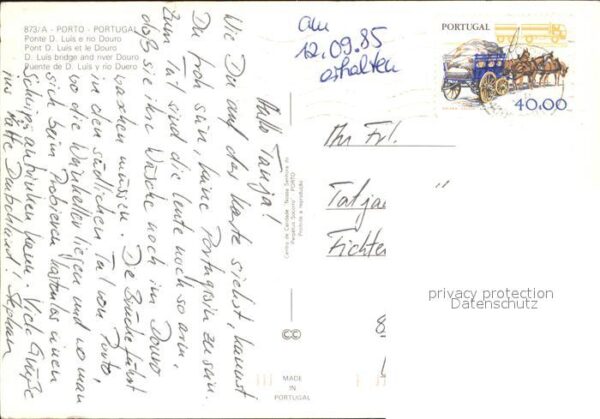 873/A - PORTO - PORTUGAL
Ponte D. Luis e rio Douro
Pont D. Luis et le Douro
D. Luis bridge and river Douro
Puente de D. Luis y rio Duero
Hallo Tanja!
Wie Du auf der Karte siehst, kannst
Du froh sein, keine Portugiesin zu sein.
Zum Teil sind die Leute noch so arm,
daß sie ihre Wäsche noch im Douro
waschen müssen. Die Brücke führt
in den südlichen Teil von Porto,
wo die Weinkeller liegen und wo man
sich beim Probieren kostenlos einen
Schwips antrinken kann. Viele Grüße
ins kalte Deutschland! Stephan
am
12.09.85
erhalten
PORTUGAL
40.00
PORTO
Proibida a reprodução
MADE
IN
PORTUGAL
Frl.
Tatja
Fichte
privacy protection
Datenschutz